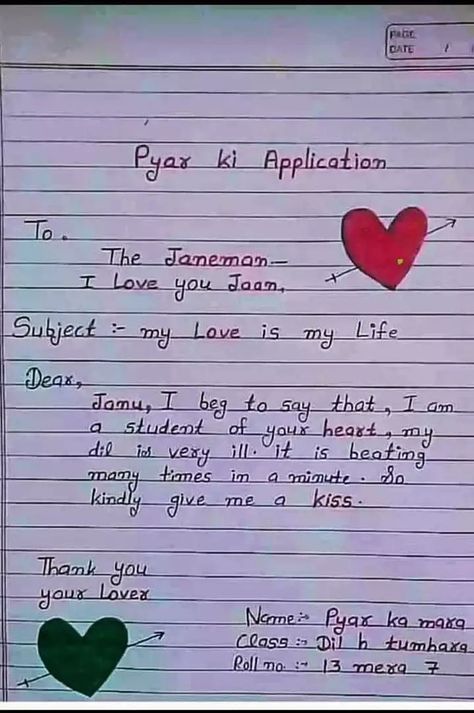 PAGE
DATE / /
Pyar ki Application
To.
The Janeman—
I Love you Jaan.
Subject :- my Love is my Life
Dear,
Jamu, I beg to say that, I am
a student of your heart, my
dil is very ill. it is beating
many times in a minute. So
kindly give me a kiss.
Thank you
your Lover
Name :- Pyar ka mara
Class :- Dil h tumhara
Roll no. :- 13 mera 7